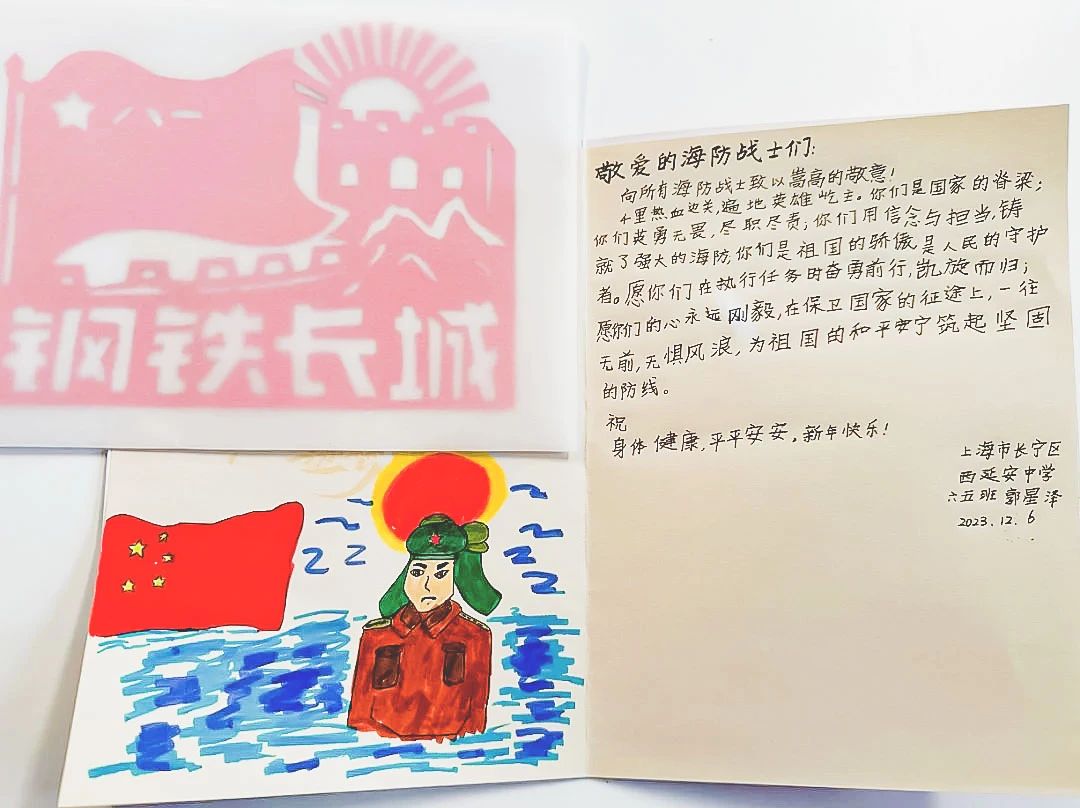 八一
钢铁长城
敬爱的海防战士们:
向所有海防战士致以嵩高的敬意!
千里热血边关,遍地英雄屹主。你们是国家的脊梁;
你们英勇无畏,尽职尽责;你们用信念与担当,铸
就了强大的海防,你们是祖国的骄傲,是人民的守护
者。愿你们在执行任务时奋勇前行,凯旋而归;
愿你们的心永远刚毅,在保卫国家的征途上,一往
无前,无惧风浪,为祖国的和平安宁筑起坚固
的防线。
祝
身体健康,平平安安。新年快乐!
上海市长宁区
西延安中学
六五班 郭星泽
2023.12.6